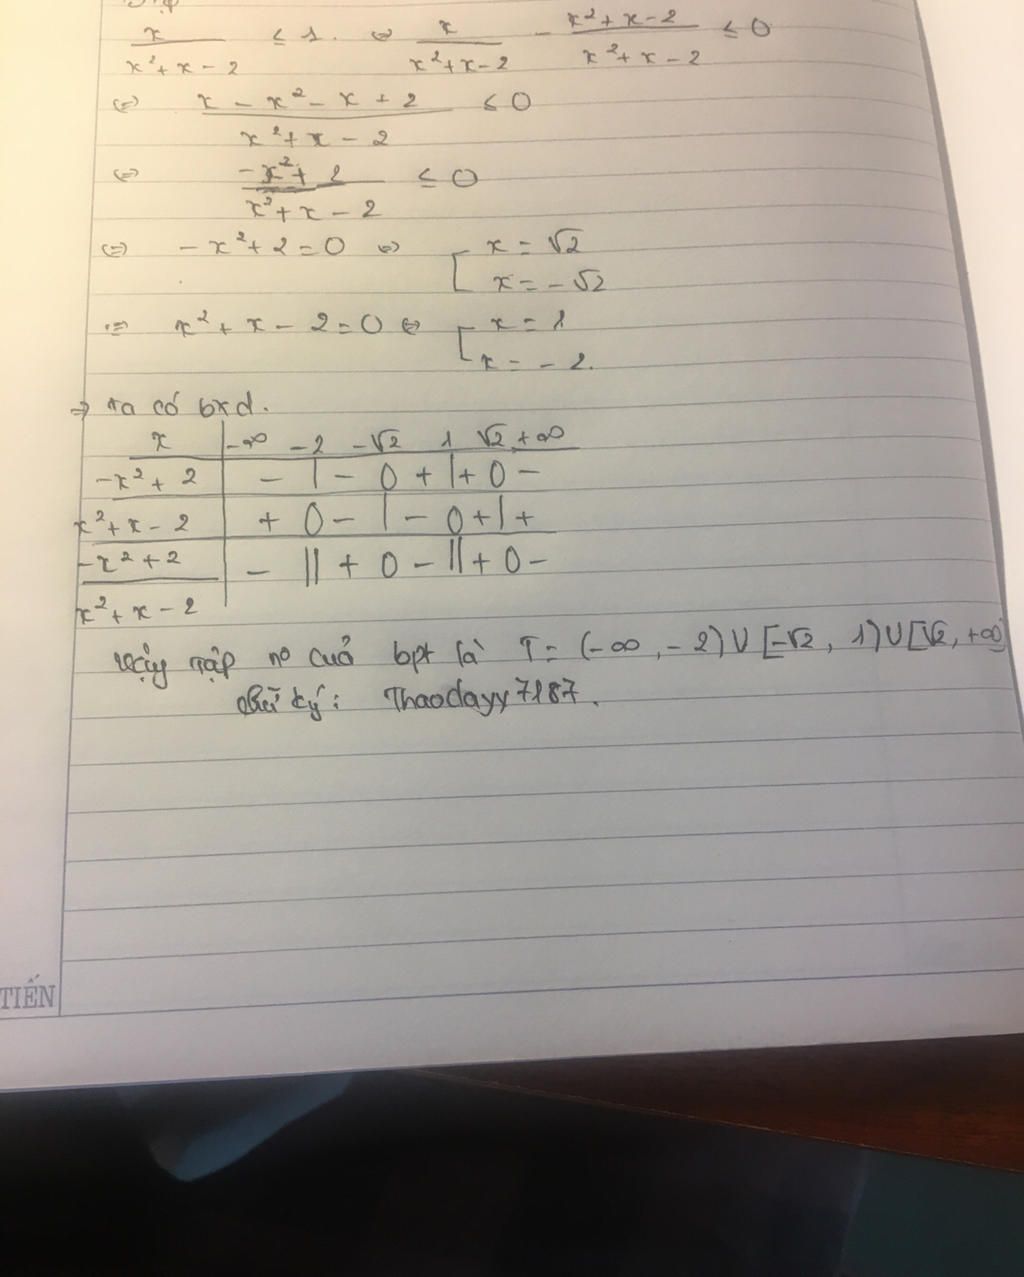 x/(x² + x - 2) ≤ 1. ⇔ x/(x² + x - 2) - (x² + x - 2)/(x² + x - 2) ≤ 0
⇔ (x - x² - x + 2)/(x² + x - 2) ≤ 0
⇔ (-x² + 2)/(x² + x - 2) ≤ 0
⇔ - x² + 2 = 0 ⇔ [ x = √2
x = - √2
x² + x - 2 = 0 ⇔ [ x = 1
x = - 2.
⇒ ta có bxd.
x | -∞ -2 -√2 1 √2 +∞
-x² + 2 | - | - 0 + | + 0 -
x² + x - 2 | + 0 - | - 0 + | +
(-x² + 2)/(x² + x - 2) | - || + 0 - || + 0 -
Vậy tập n⁰ cuả bpt là T = (-∞, -2) ∪ [-√2, 1) ∪ [√2, +∞)
chữ ký: Thaodayy7187.
TIẾN